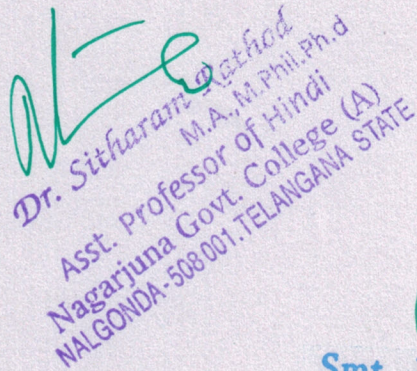 Dr. Sitharam Rathod
M.A., M.Phil, Ph.d
Asst. Professor of Hindi
Nagarjuna Govt. College (A)
NALGONDA-508001. TELANGANA STATE
Smt